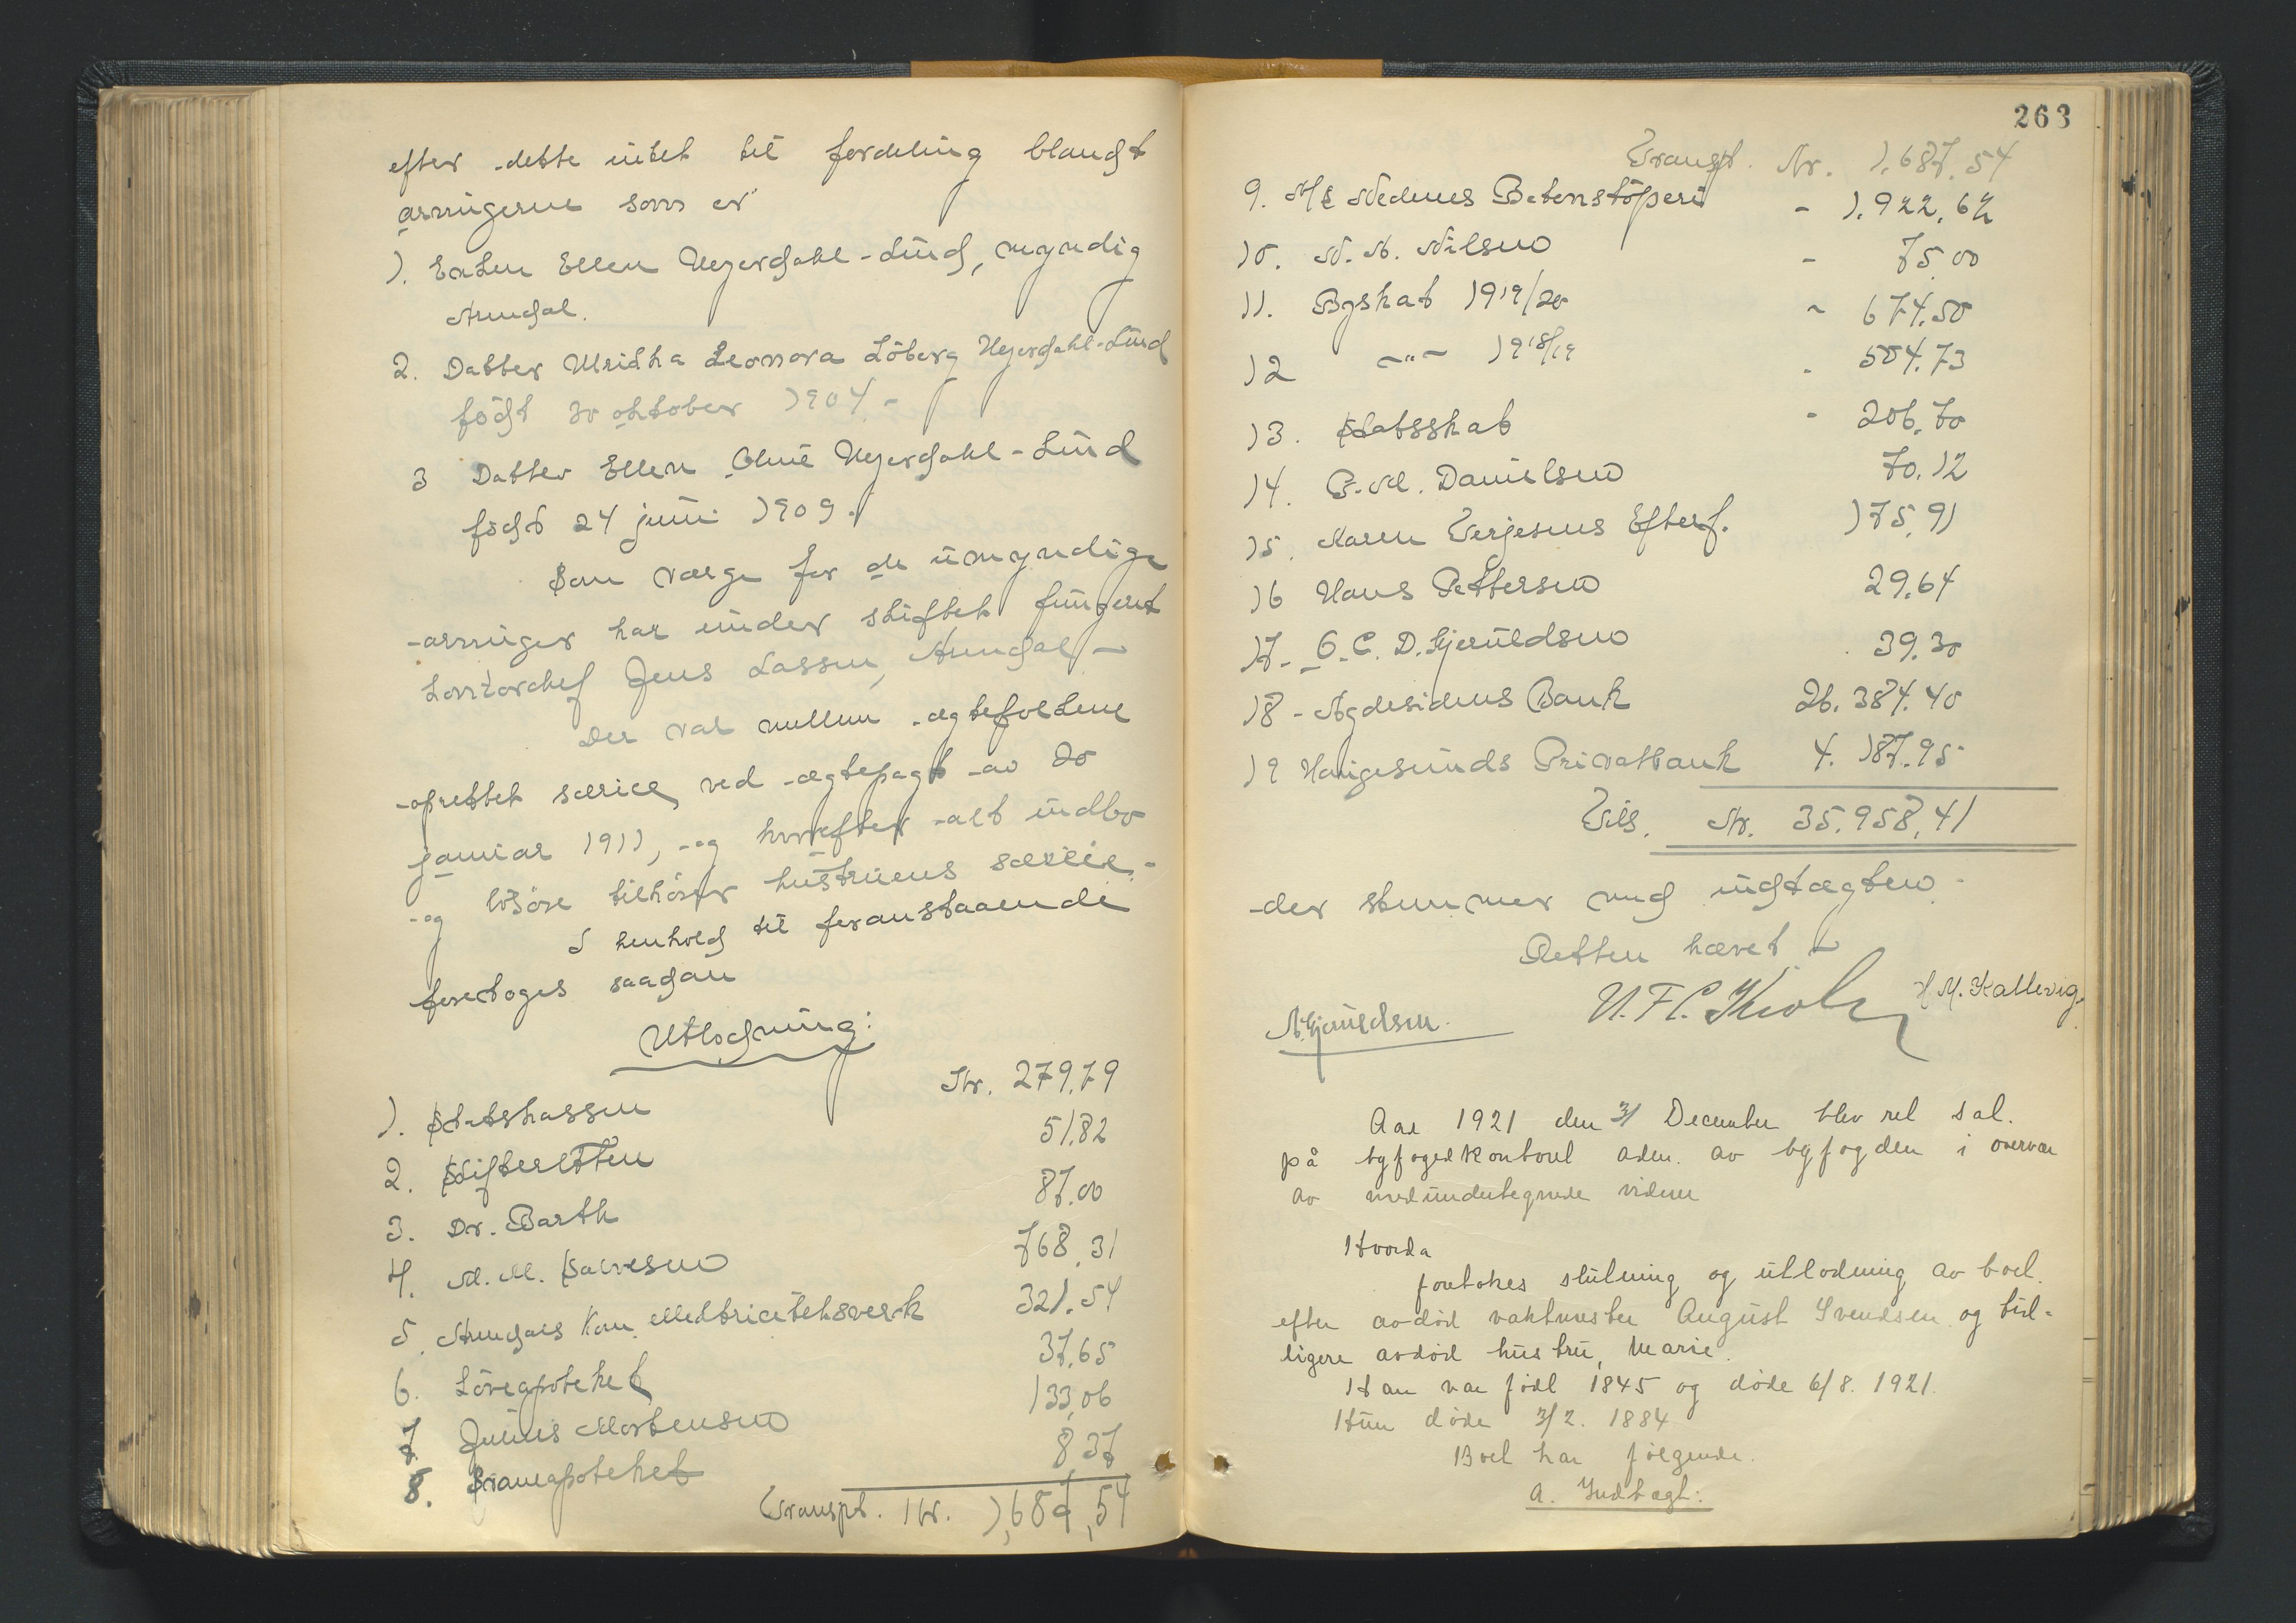 efter dette intet til fordeling blandt
arvingerne som er
1. Enken Ellen Heyerdahl-Lund, myndig
Arendal.
2. Datter Ulrikka Leonora Löberg Heyerdahl-Lund
född 30 oktober 1904 -
3 Datter Ellen Heyerdahl-Lund
född 24 juni 1909.
Som værge for de umyndige
arvinger har under skiftet fungert
kontorchef Jens Lassen, Arendal -
Der var mellem egtefolkene
oprettet særeie ved egtepagt av 20
januar 1911, og hvorefter alt indbo
og lösöre tilhörer hustruens særeie. -
I henhold til foranstaaende
foretoges saadan
Utlodning:
1. Statskassen Kr. 279.79
2. Skifteretten 51.82
3. Dr. Barth 87.00
4. M. M. Salvesen 768,31
5. Arendals kom. elektricitetsverk 321.54
6. Löveapoteket 37.65
7 Julius Mortensen 133,06
8. Svaneapoteket 8,37
Transpt. Kr. 1,687,54
263
Transpt. Kr. 1.687.54
9. A/S Nedenes Betonstöperi - 1.922,62
10. N. A. Nilsen - 75,00
11. Byskat 1919/20 - 674.50
12 -"- 1918/19 - 504.73
13. Statsskat - 206,70
14. P. M. Danielsen 70.12
15. Karen Terjesens Efterf. 175,91
16 Hans Pettersen 29.64
17. O. C. D. Gjeruldsen 39.30
18 - Agdesidens Bank 26.384.40
19 Haugesunds Privatbank 4.187.95
Tils. Kr. 35.958,41
der stemmer med indtægten -
Retten hævet -
A. Gjeruldsen. H. M. Kallevig.
Aar 1921 den 31 December blev ret sat.
på byfogedkontoret adm. av byfogden i overvær
av medundertegnede vidner
Hvorda
foretokes slutning og utlodning av boet
efter avdöd vaktmester August Svendsen og tid-
ligere avdöd hustru, Marie.
Han var född 1845 og döde 6/8. 1921.
Hun döde 3/2. 1884
Boet har fölgende.
A. Indtægt: